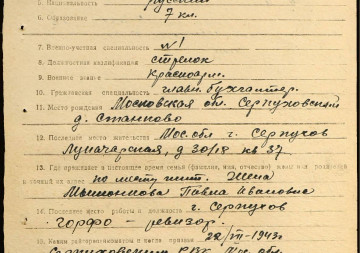 5. Национальность русский
6. Образование 7 кл.
7. Военноучетная специальность №1
8. Должностная квалификация стрелок
9. Военное звание Красноарм.
10. Гражданская специальность главн. бухгалтер.
11. Место рождения Московская обл. Серпуховский
д. Станково
12. Последнее место жительства Мос. обл г. Серпухов
Луначарская, д 30/8 кв 37
13. Где проживает в настоящее время семья (фамилия, имя, отчество)
по месту жит. Жена
Ивановна
14. Последнее место работы и должность г. Серпухов
горфо – ревизор.
15. Каким райгорвоенкоматом и когда призван 22/VII-1943г
Серпуховским РВК Мос. обл.